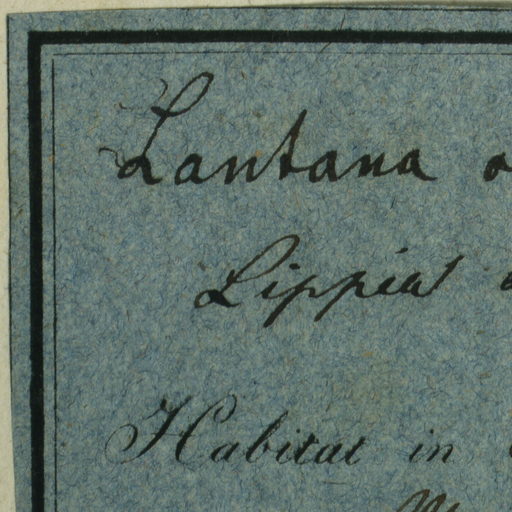 Lantana
Lippia
Habitat in